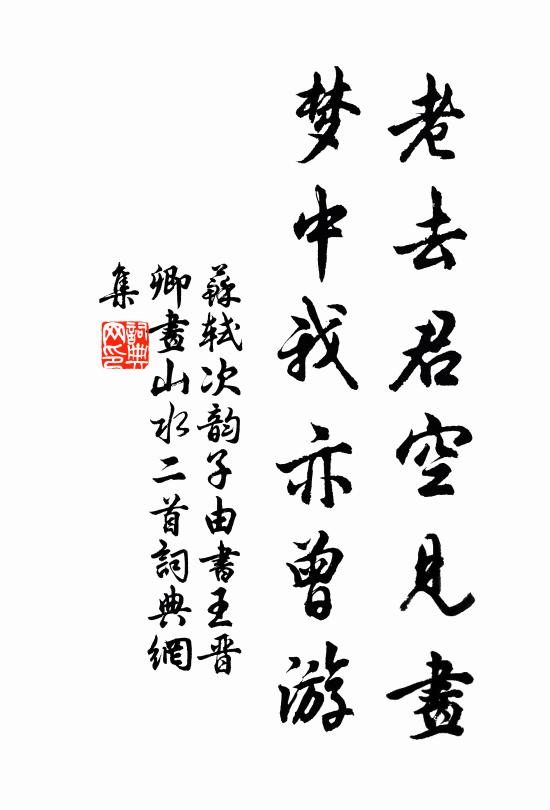 老去君空見畫
梦中我亦曾游
蘇轼次韵子由書王晋
卿畫山水二首詞典網
集
詞典
网印